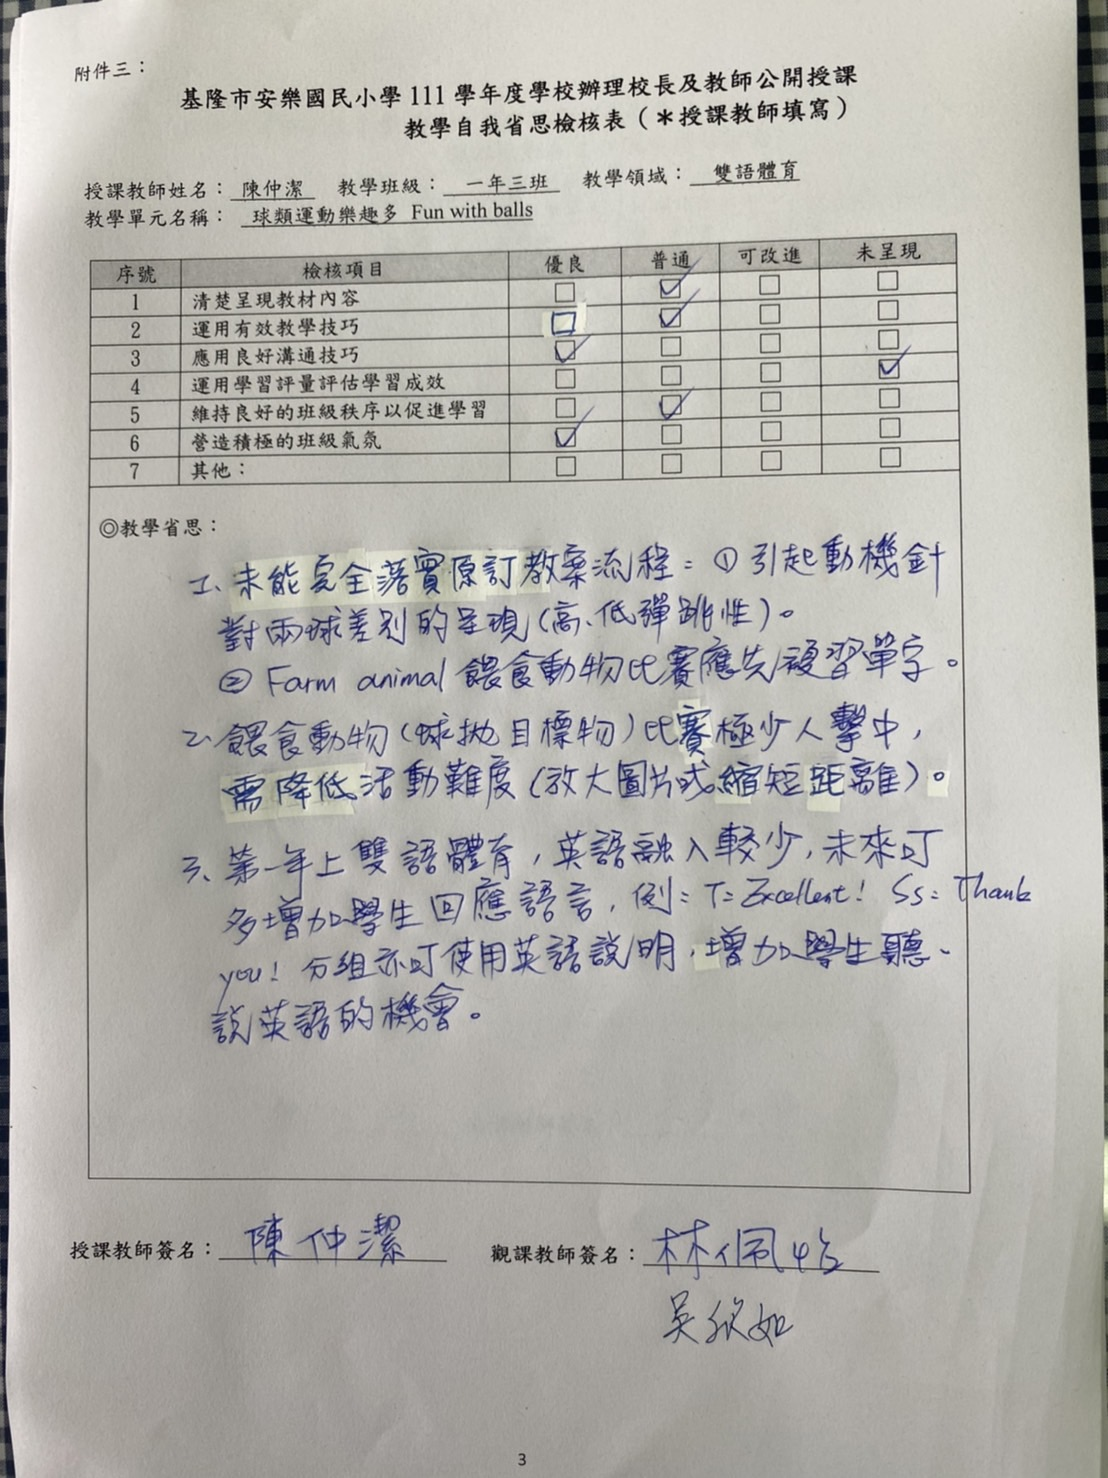 附件三：
基隆市安樂國民小學 111 學年度學校辦理校長及教師公開授課
教學自我省思檢核表（＊授課教師填寫）
授課教師姓名： 陳仲潔 教學班級： 一年三班 教學領域： 雙語體育
教學單元名稱： 球類運動樂趣多 Fun with balls
序號 檢核項目 優良 普通 可改進 未呈現
1 清楚呈現教材內容 □ ☑ □ □
2 運用有效教學技巧 □ ☑ □ □
3 應用良好溝通技巧 ☑ □ □ □
4 運用學習評量評估學習成效 □ □ □ ☑
5 維持良好的班級秩序以促進學習 □ ☑ □ □
6 營造積極的班級氣氛 ☑ □ □ □
7 其他： □ □ □ □
◎教學省思：
1、未能完全落實原訂教案流程：① 引起動機針
對兩球差別的呈現(高、低彈跳性)。
② Farm animal 餵食動物比賽應先複習單字。
2、餵食動物(球拋目標物)比賽極少人擊中，
需降低活動難度(放大圖片或縮短距離)。
3、第一年上雙語體育，英語融入較少，未來可
多增加學生回應語言，例：T：Excellent! Ss：Thank
you! 分組亦可使用英語說明，增加學生聽、
說英語的機會。
授課教師簽名： 陳仲潔 觀課教師簽名： 林佩怡
吳欣如
3